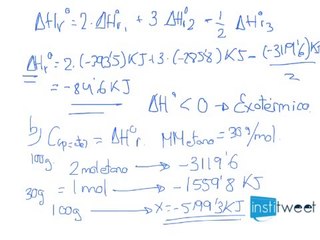 ΔHr° = 2·ΔH°r1 + 3 ΔH°r2 - 1/2 ΔH°r3
ΔHr° = 2·(-393'5) KJ + 3·(-285'8) KJ - (-3119'6) KJ / 2
= -84'6 KJ
ΔH° < 0 → Exotérmico
b) = ΔH°r MMetano = 30 g/mol.
100g 2 mol etano → -3119'6
30g = 1 mol → -1559'8 KJ
100g → x = -5199'3 KJ
institweet